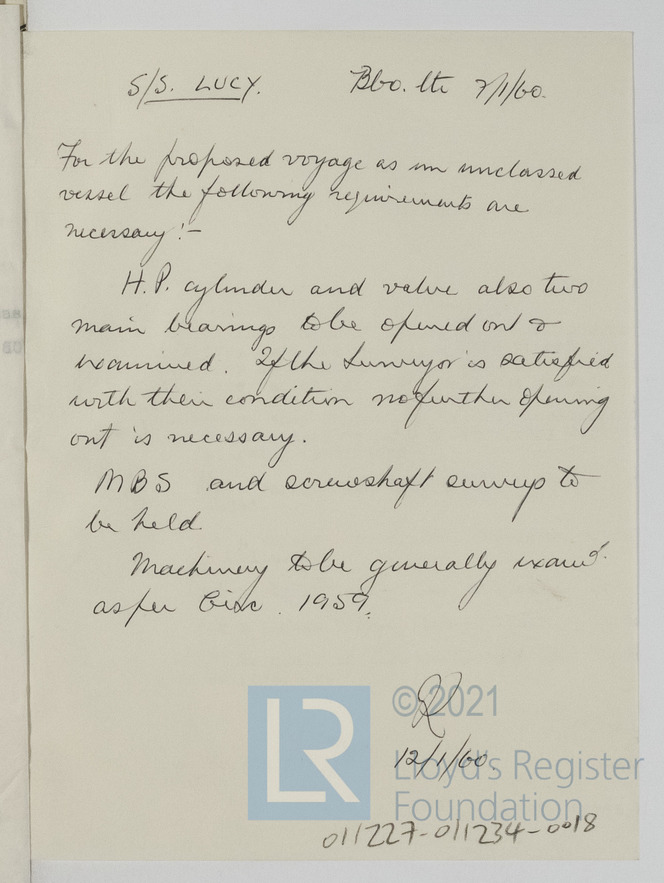 S/S. LUCY. Bbo. ltr 7/1/60.
For the proposed voyage as an unclassed
vessel the following requirements are
necessary :-
H.P. cylinder and valve also two
main bearings to be opened out &
examined. If the Surveyor is satisfied
with their condition no further opening
out is necessary.
MBS and screwshaft surveys to
be held
Machinery to be generally examd.
as per Circ. 1959.
LR
© 2021
12/1/60.
Lloyd's Register
Foundation
011227-011234-0018